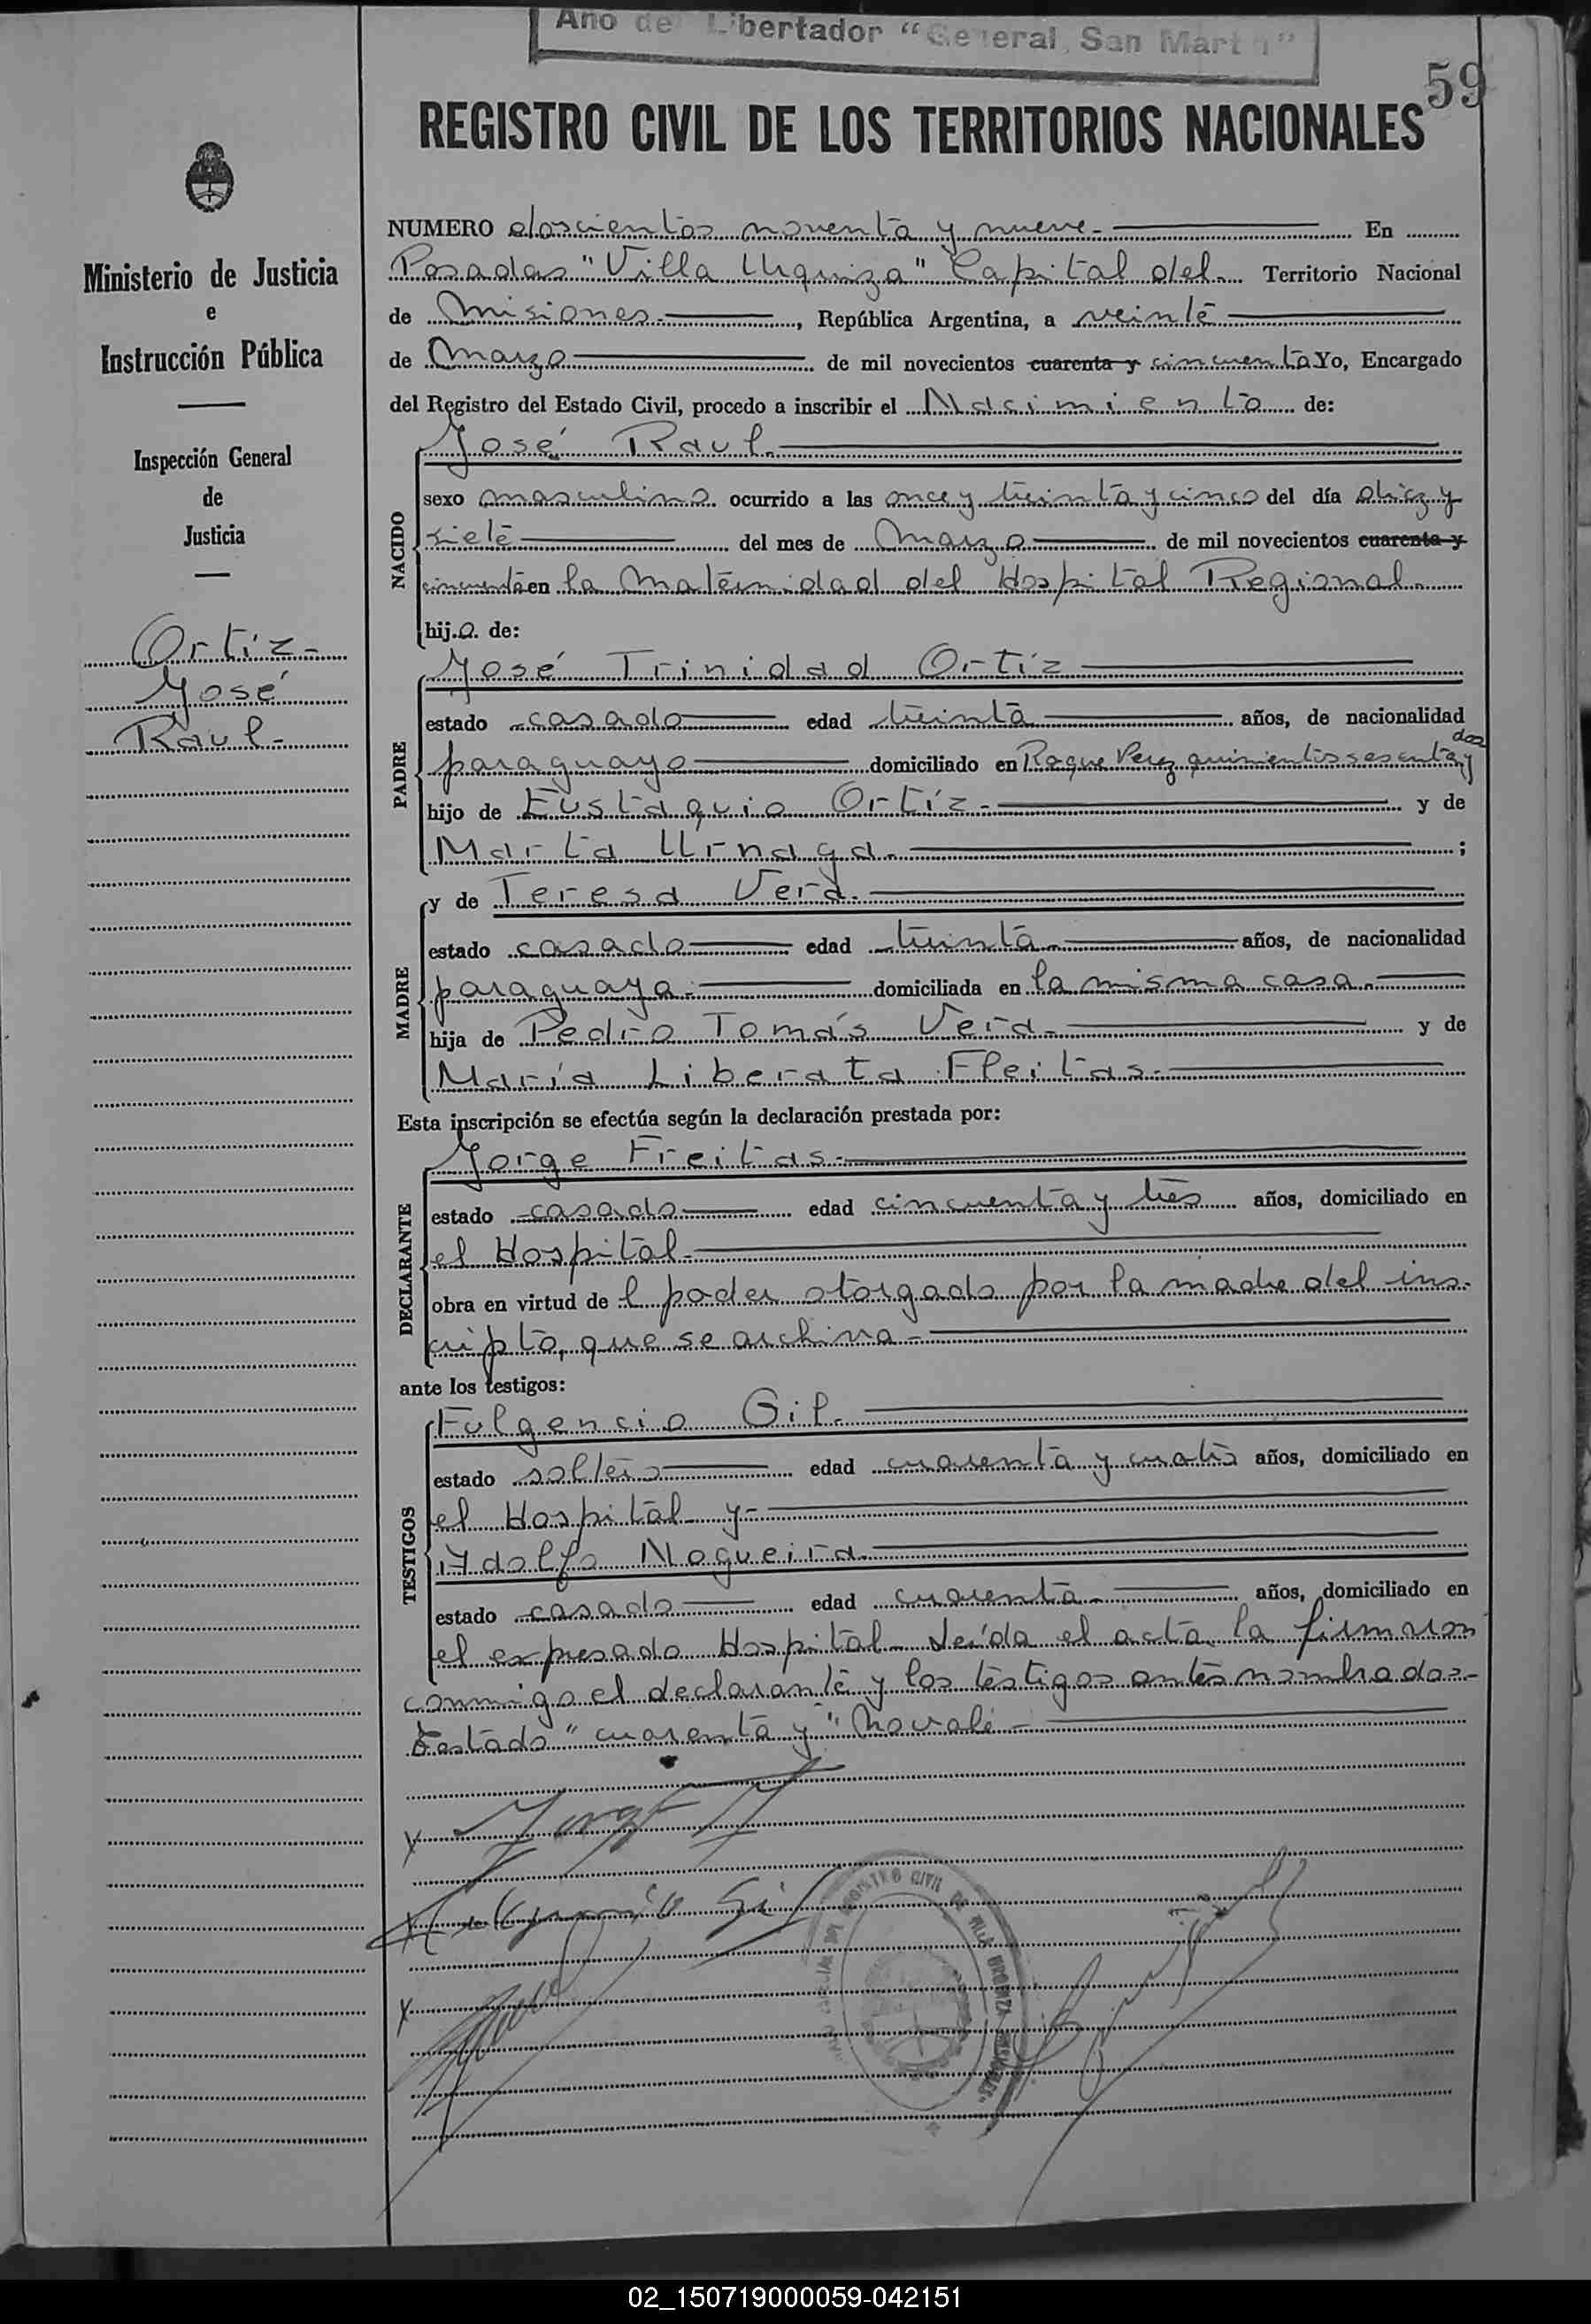 Año del Libertador “General San Martín”
59
REGISTRO CIVIL DE LOS TERRITORIOS NACIONALES
Ministerio de Justicia
e
Instrucción Pública
Inspección General
de
Justicia
Ortíz-
José
Raul-
NUMERO doscientos noventa y nueve- En
Posadas "Villa Urquiza" Capital del Territorio Nacional
de Misiones-, República Argentina, a veinte
de Marzo de mil novecientos cuarenta y cincuenta Yo, Encargado
del Registro del Estado Civil, procedo a inscribir el Nacimiento de:
NACIDO
José Raul-
sexo masculino ocurrido a las once y treinta y cinco del día diez y
siete del mes de Marzo de mil novecientos cuarenta y
cincuenta en la Maternidad del Hospital Regional-
hijo de:
PADRE
José Trinidad Ortíz
estado casado edad treinta años, de nacionalidad
paraguayo domiciliado en Roque Perez quinientos sesenta y dos
hijo de Eustaquio Ortíz- y de
Marta Urnaga- ;
MADRE
y de Teresa Vera-
estado casada edad treinta- años, de nacionalidad
paraguaya- domiciliada en la misma casa-
hija de Pedro Tomás Vera- y de
María Liberata Fleitas-
Esta inscripción se efectúa según la declaración prestada por:
DECLARANTE
Jorge Freitas-
estado casado edad cincuenta y tres años, domiciliado en
el Hospital-
obra en virtud de l poder otorgado por la madre del ins-
cripto, que se archiva-
ante los testigos:
TESTIGOS
Fulgencio Gil-
estado soltero edad cuarenta y cuatro años, domiciliado en
el Hospital y-
Adolfo Nogueira-
estado casado edad cuarenta- años, domiciliado en
el expresado Hospital- Leída el acta la firmaron
conmigo el declarante y los testigos antes nombrados-
Testado "cuarenta y" No vale-
Jorge F
Fulgencio Gil
REGISTRO CIVIL DE VILLA URQUIZA
02_150719000059-042151